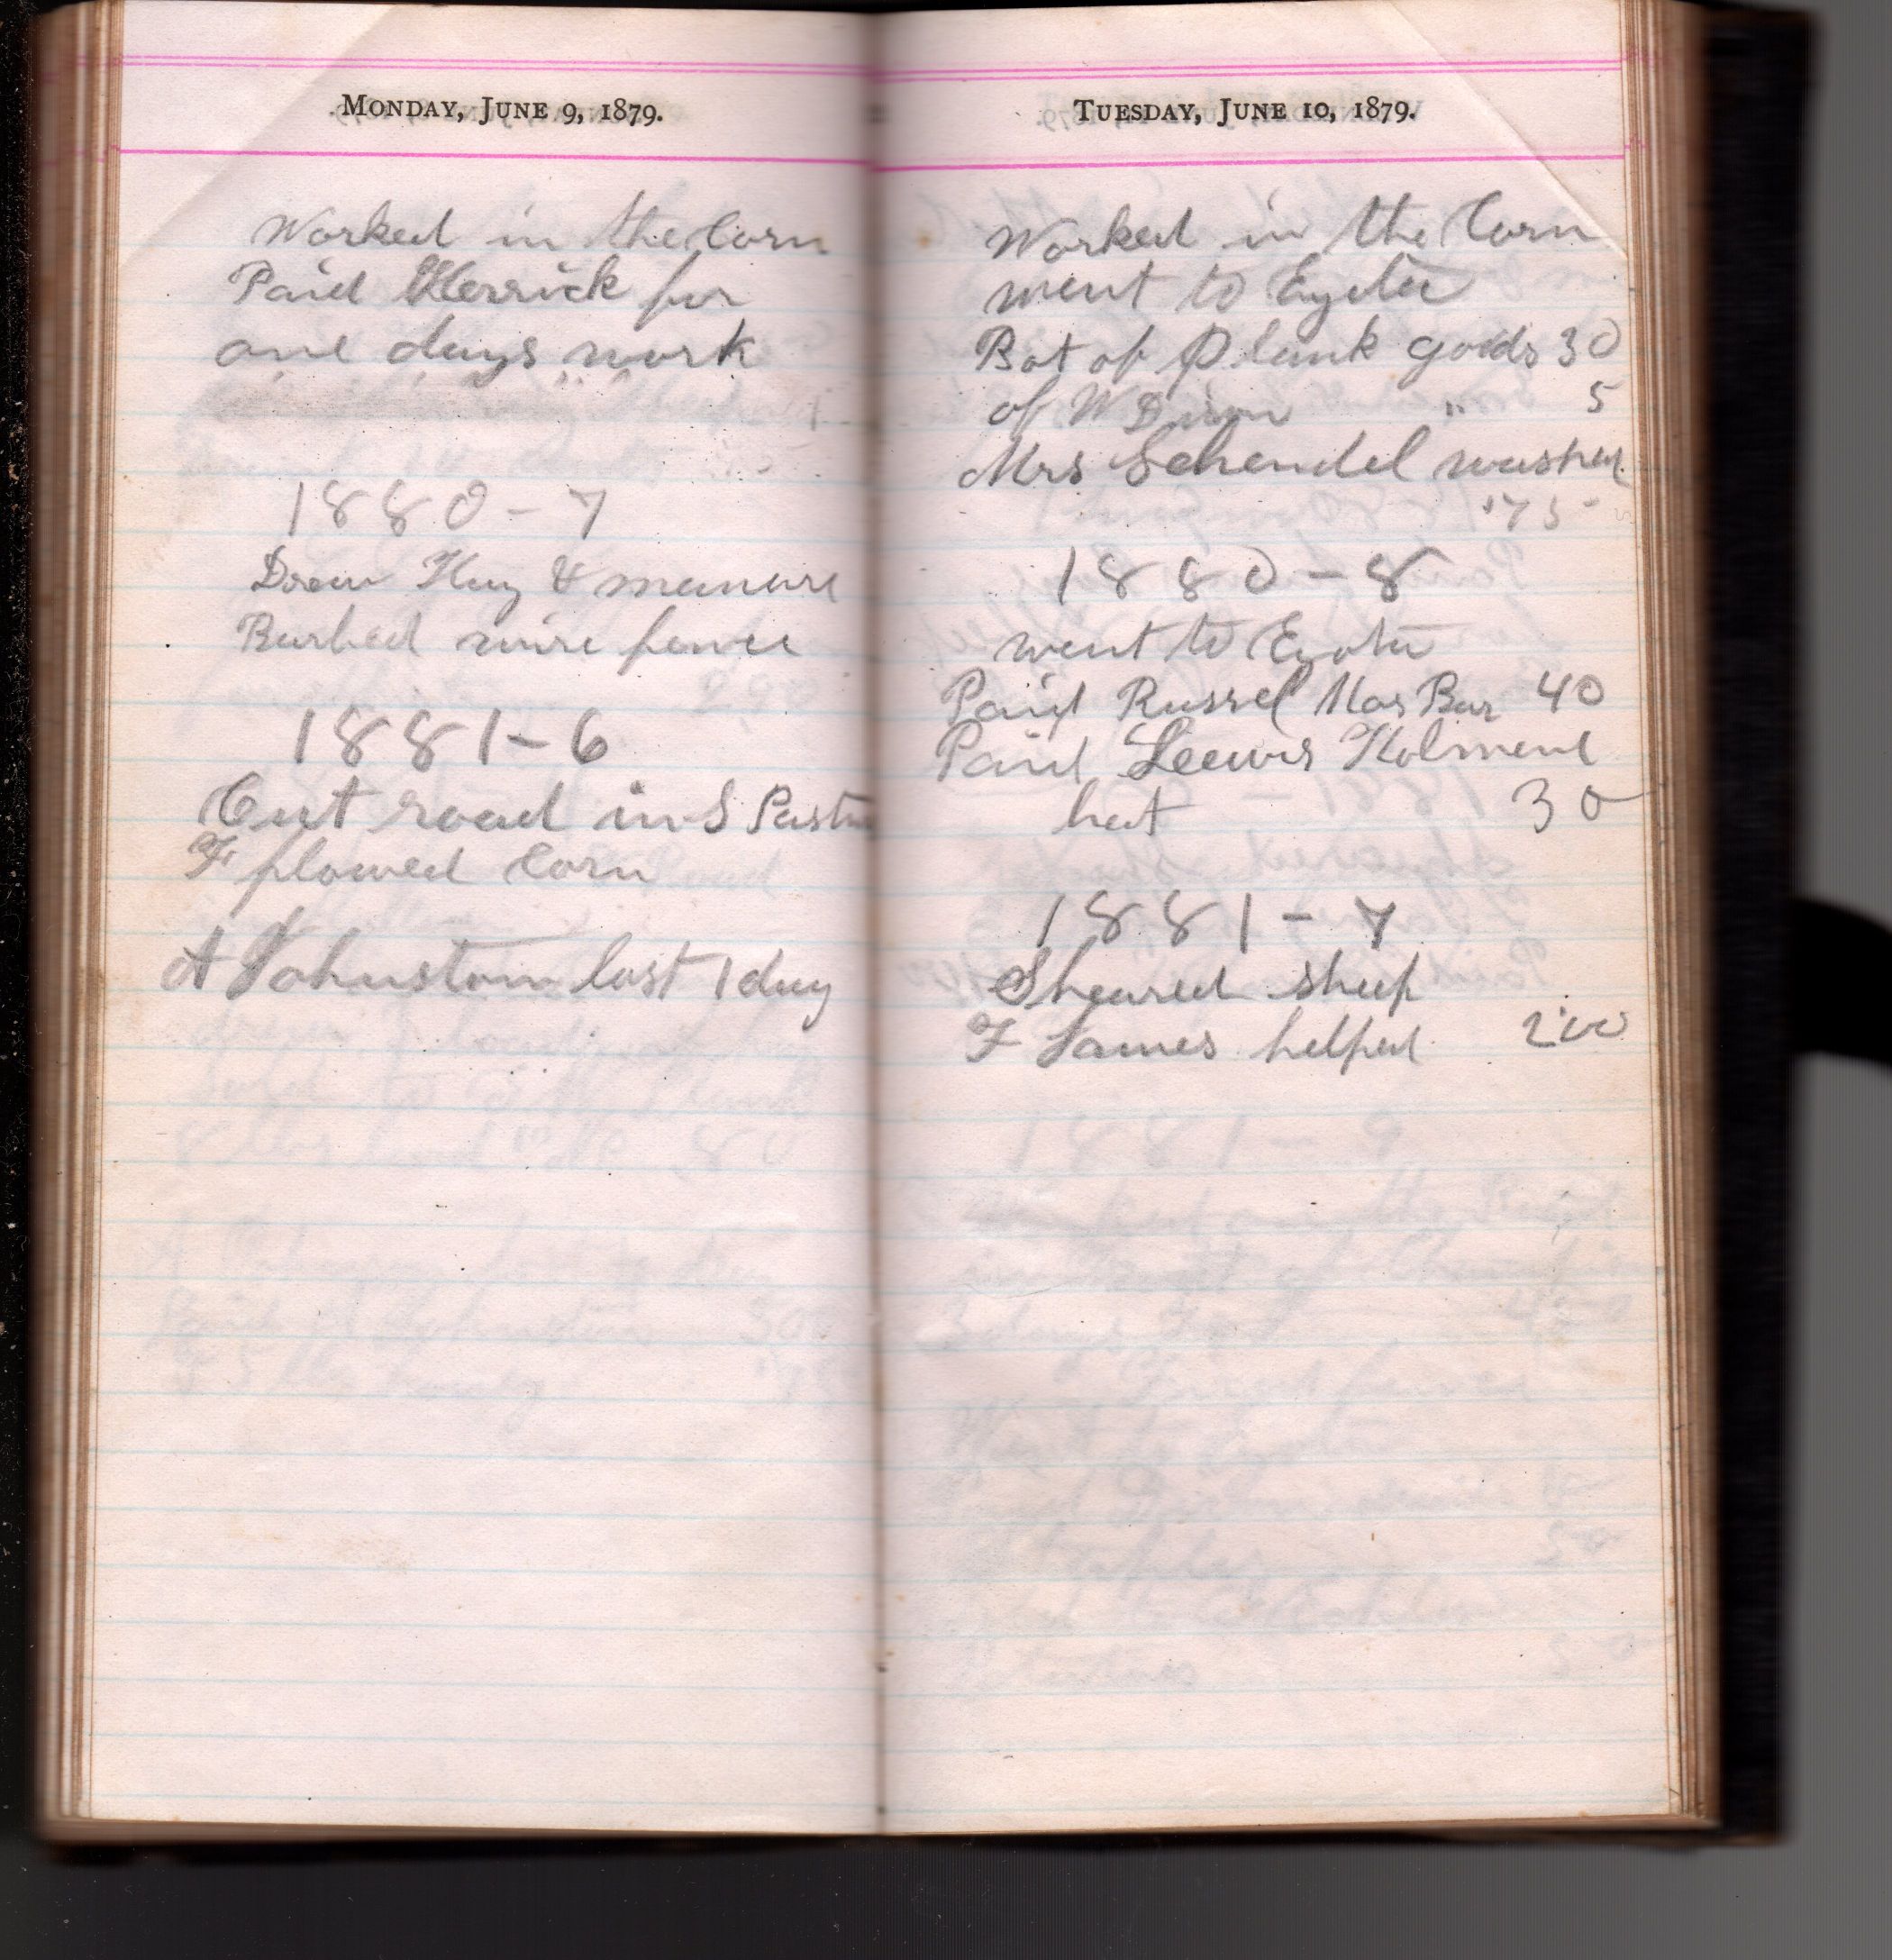 MONDAY, JUNE 9, 1879.
Worked in the Corn
Paid Herrick for
one days work
1880-7
Drew Hay & manure
Barbed wire fence
1881-6
Cut road in S Pasture
F plowed Corn
A Johnston lost 1 day
TUESDAY, JUNE 10, 1879.
Worked in the Corn
went to Eyota
Bot of Plank goods 30
of W " 5
Mrs Schendel washed
.75
1880-8
went to Eyota
Paid Russel Bar 40
Paid Leewis
hat 30
1881-7
Sheared sheep
F James helped 2.00